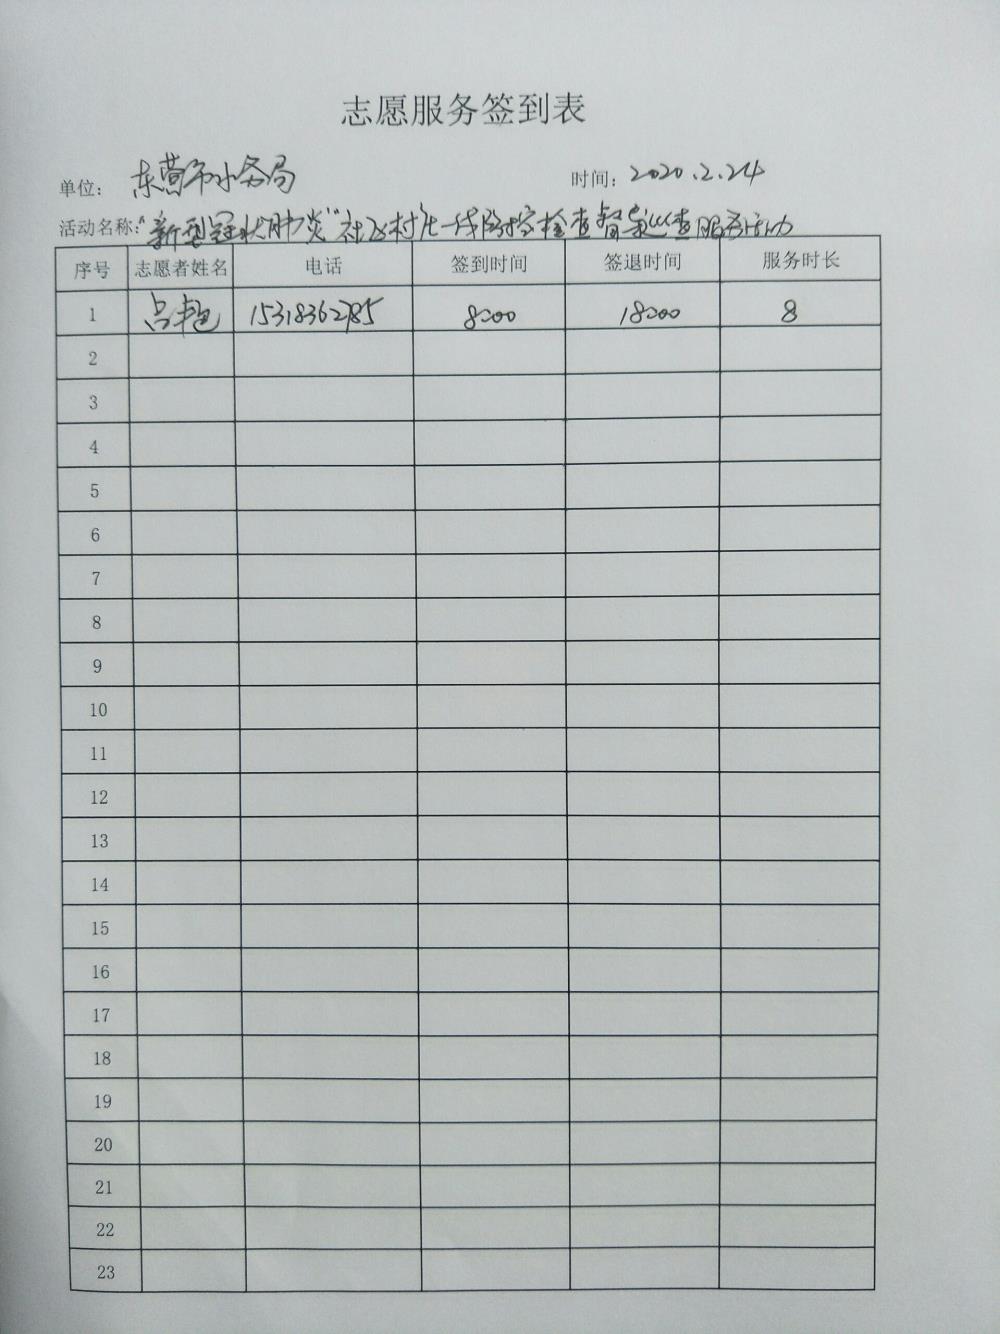 志愿服务签到表
单位： 东营市水务局 时间：2020.2.24
活动名称："新型冠状肺炎"社区村庄一线防控检查督导巡查服务活动
序号 志愿者姓名 电话 签到时间 签退时间 服务时长
1 吕 15318362785 8:00 18:00 8
2
3
4
5
6
7
8
9
10
11
12
13
14
15
16
17
18
19
20
21
22
23